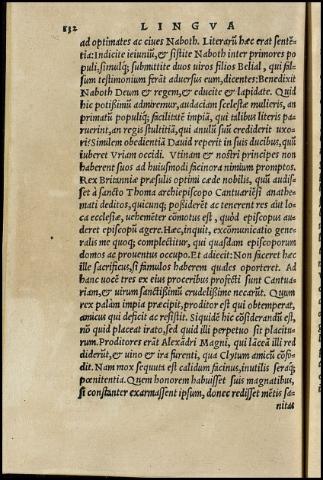 132 LINGVA
ad optimates ac ciues Naboth. Literarũ hæc erat sentẽ-
tia: Indicite ieiuniũ, & sistite Naboth inter primores po
puli, simulq; submittite duos uiros filios Belial, qui fal-
sum testimonium ferãt aduersus eum, dicentes: Benedixit
Naboth Deum & regem, & educite & lapidate. Quid
hic potißimũ admiremur, audaciam scelestæ mulieris, an
primatũ populiq; facilitatẽ impiã, qui talibus literis pa-
ruerint, an regis stultitiã, qui anulũ suũ crediderit uxo-
ri? Similem obedientiã Dauid reperit in suis ducibus, quũ
iuberet Vriam occidi. Vtinam & nostri principes non
haberent suos ad huiusmodi facinora nimium promptos.
Rex Britanniæ præsulis optimi cæde nobilis, quũ audis-
set à sancto Thoma archiepiscopo Cantuariẽsi anathe-
mati deditos, quicunq; poßiderẽt ac tenerent res aut lo-
ca ecclesiæ, uehemẽter cõmotus est, quòd episcopus au-
deret episcopũ agere. Hæc, inquit, excõmunicatio gene-
ralis me quoq; complectitur, qui quasdam episcoporum
domos ac prouentus occupo. Et adiecit: Non faceret hæc
ille sacrificus, si famulos haberem quales oporteret. Ad
hanc uocẽ tres ex eius proceribus profecti sunt Cantua-
riam, & uirum sanctißimũ crudelißime necarũt. Quum
rex palàm impia præcipit, proditor est qui obtemperat,
amicus qui deficit ac resistit. Siquidẽ hic cõsiderandũ est,
nõ quid placeat irato, sed quid illi perpetuo sit placitu-
rum. Proditores erãt Alexãdri Magni, qui lãceã illi red
diderũt, & uino & ira furenti, qua Clytum amicũ cõfo-
dit. Nam mox sequuta est calidum facinus, inutilis seraq;
pœnitentia. Quem honorem habuisset suis magnatibus,
si constanter exarmassent ipsum, donec redisset mẽtis sa-
nitas